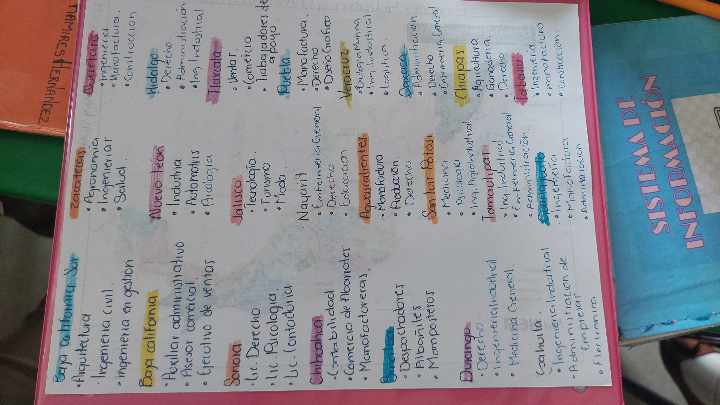 Baja california Sur
• Arquitectura
• Ingenieria civil.
• ingenieria en gestion
Baja california
• Auxiliar administrativo
• Asesor comercial
• Ejecutivo de ventas
Sonora
• Lic. Derecho
• Lic. Psicologia
• Lic. Contaduria
Chihuahua
• Contabilidad
• Comercio de
• Manofactoreras.
• Despachadores
• Albañiles
• Mamposteros
Durango
• Derecho
• Ingenieria Industrial
• Medicina General
Coahuila.
• Ingenieria Industrial
• Administracion de
Empresas
Zacatecas
• Agronomia
• Ingenieria
• Salud.
Nuevo León
• Industria
Automotriz
• Psicologia
Jalisco
• Tecnología.
• Turismo
• Moda.
Nayarit
• Enfermeria General
• Derecho
• Educacion
Aguascalientes
• Manofactura
• Produccion
• Derecho
San Luis Potosi
• Medicina
• Psicologia
• Ing. Agroindustrial
Tamaulipas
• Ing. Industrial
• Enfermeria General
• Administración
Guanajuato
• Ingenieria
• Manofactura
• Administracion
• Ingenieria
• Manofactura.
• Construccion
Hidalgo
• Derecho
• Administracion
• Ing. Industrial
Tlaxcala
• Ventas.
• Comercio
• Trabajadores de
apoyo
Puebla
• Manofactura.
• Derecho
• Diseño Grafico
Veracruz
• Ing. Industrial
• Logistica
Oaxaca
• Administracion
• Derecho
• Enfermeria General
Chiapas
• Agricultura
• Ganaderia.
• Derecho
Tabasco
• Ingenieria
• manofactura
• Construccion
SISTEMA DE
INFORMACIÓN
HERNÁNDEZ